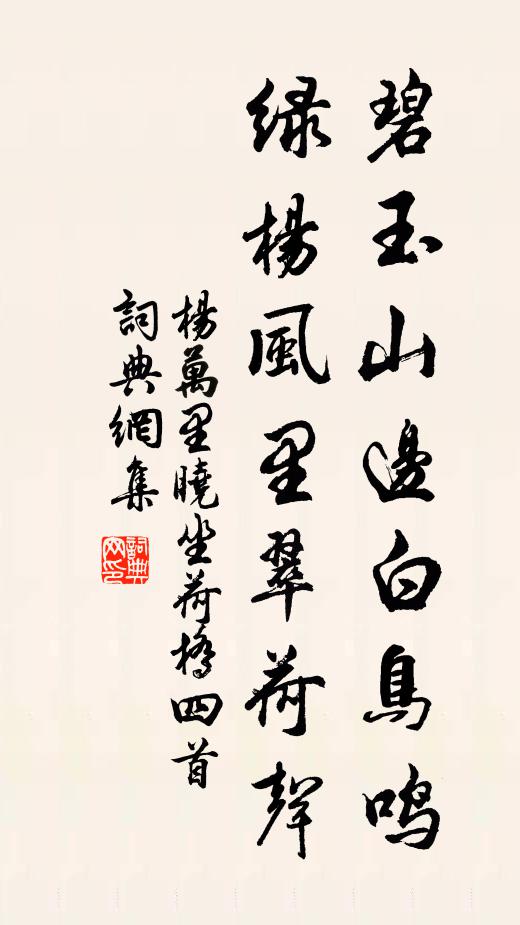 碧玉山邊白鳥鳴
緑楊風里翠荷聲
楊萬里曉坐荷橋四首
詞典網集
詞典网印